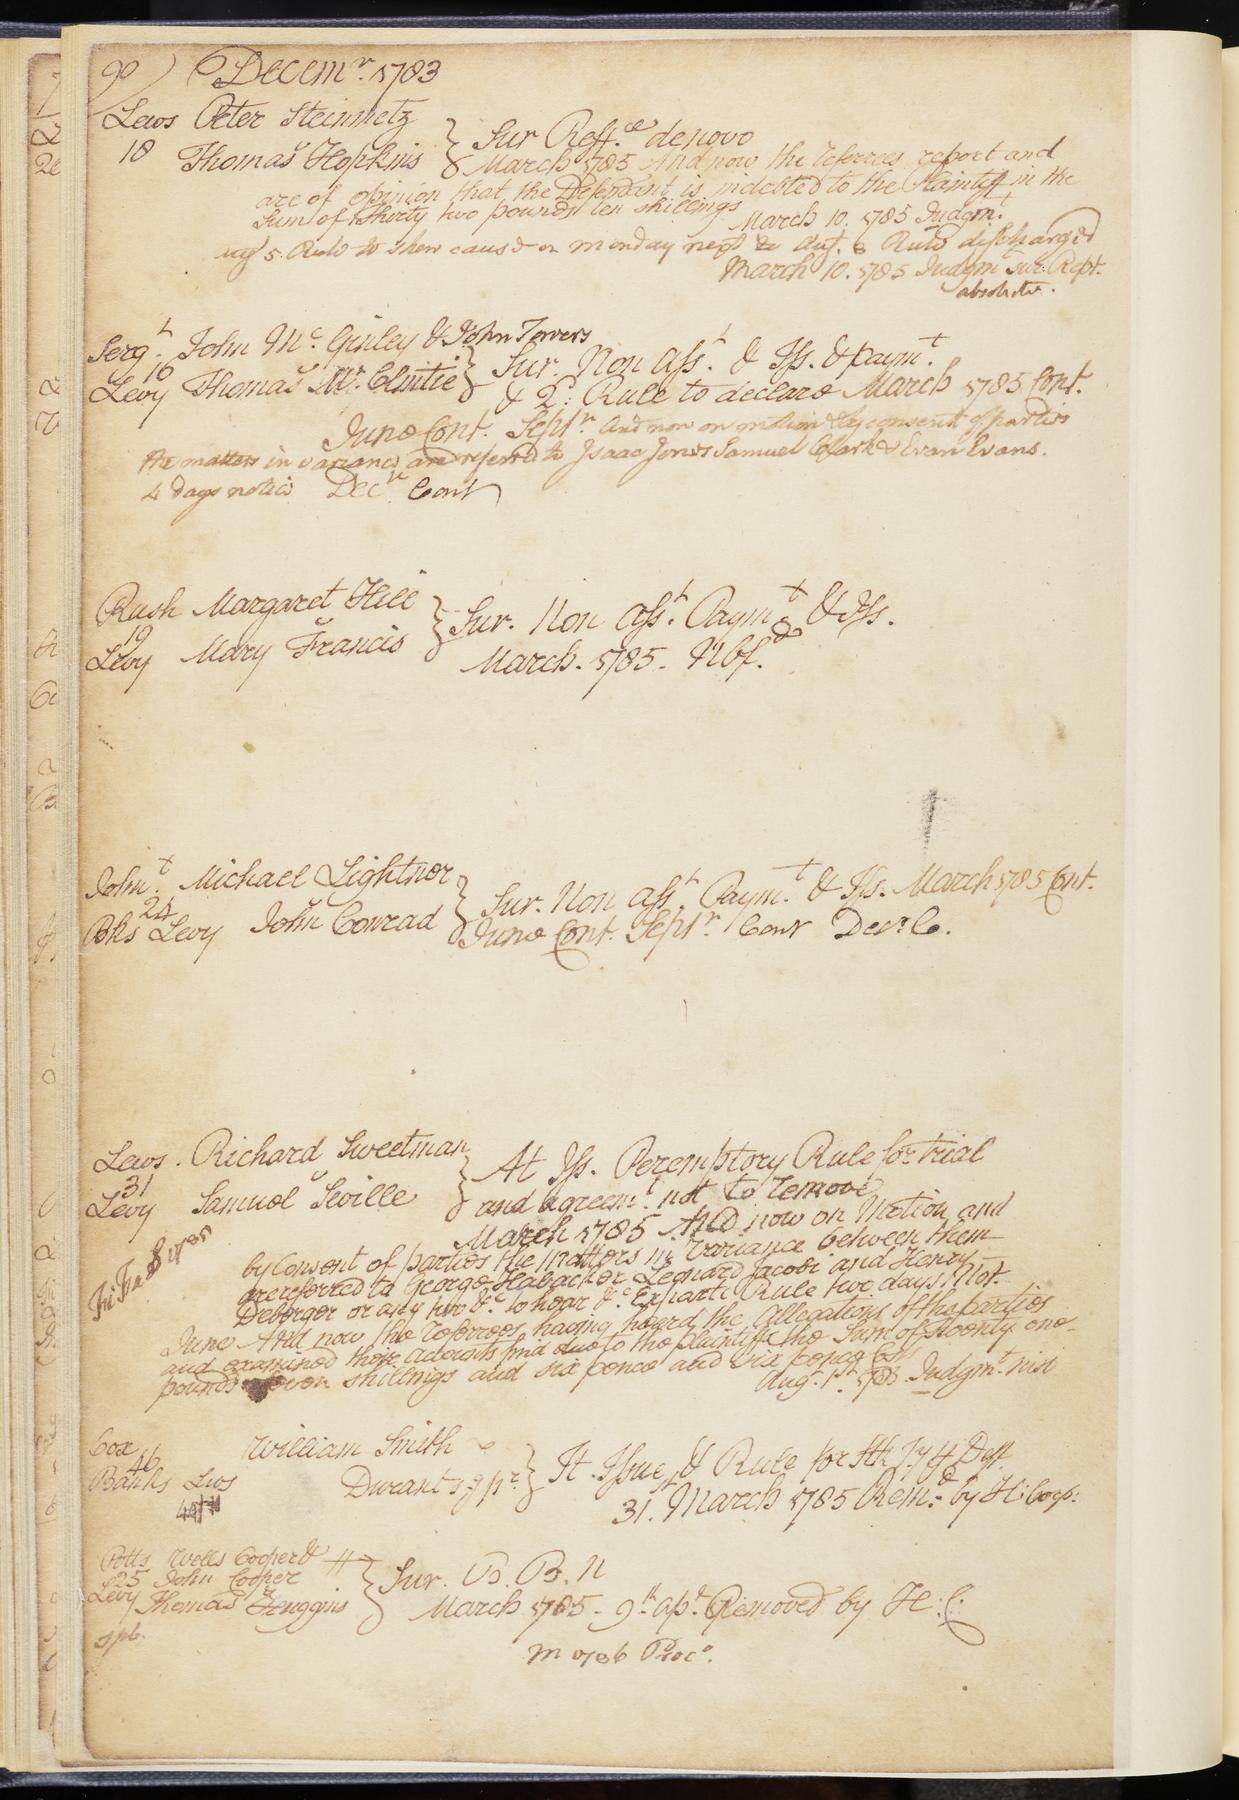 90) Decemr. 1783
Lews Peter Steinmetz
18 vs Thomas Hopkins } Sur Reff.ce denovo
March 1785 And now the referees report and
are of opinion that the Defendant is indebted to the Plaintiff in the
Sum of Thirty two pounds ten shillings March 10. 1785 Judgmt.
Augt 5. Rule to shew cause on monday next & Augt. 8 Rule discharged
March 10. 1785 Judgmt Sur. Rept.
absolute.
Sergt. John Mc. Ginley & John Towers
16
Levy Thomas Mc. Clintie } Sur. Non Asst. & Iss. & paymt.
& 2d. Rule to declare March 1785 Cont.
June Cont. Septr. And now on motion & by consent of parties
the matters in variance are referred to Isaac Jones Samuel Clark & Evan Evans.
4 days notice Decr Cont
Rush Margaret Hill
19 vs
Levy Mary Francis } Sur. Non Asst. Paymt & Iss.
March. 1785. N Bf.
Johnt. Michael Lightner
24 vs
Bks Levy John Conrad } Sur. Non Asst. Paymt. & Iss. March 1785 Cont.
June Cont. Septr. Cont Decr. Co.
Lews. Richard Sweetman
31 vs
Levy Samuel Seville } At Iss. Peremptory Rule for trial
and agreemt. not to remove
March 1785 And now on Motion and
by Consent of parties the matters in Variance between them
are referred to George Habacker Leonard Jacobi and Henry
Deberger or any two &c. to hear &c. Exparte Rule two days Not.
June And now the referrees having heard the Allegations of the parties
and examined their Accounts find due to the plaintiff the Sum of Twenty one
pounds seven shillings and six pence and six pence Costs
Augt. 1st. 1785. Judgmt. nisi
Cox William Smith
46
Banks Lws Durant } At Issue, & Rule for
31st. March 1785 Remd. by H: Corp:
Potts Wells Cooper &
125 John Cooper
Levy Thomas } Sur. B. B. N
March 1785 - 9th. apl. Removed by H. C.
m 1786 Proco.